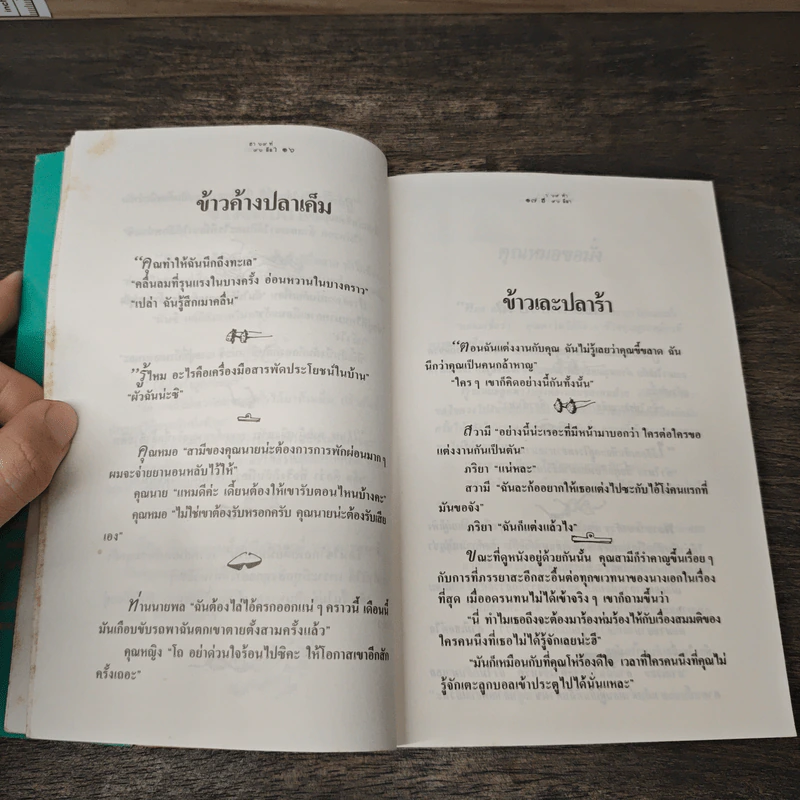 ๑๖
ข้าวค้างปลาเค็ม
“คุณทำให้ฉันนึกถึงทะเล”
“คลื่นลมที่รุนแรงในบางครั้ง อ่อนหวานในบางคราว”
“เปล่า ฉันรู้สึกเมาคลื่น”
“รู้ไหม อะไรคือเครื่องมือสารพัดประโยชน์ในบ้าน”
“ผัวฉันน่ะซิ”
คุณหมอ “สามีของคุณนายน่ะต้องการการพักผ่อนมากๆ
ผมจะจ่ายยานอนหลับไว้ให้”
คุณนาย “แหมดีค่ะ เดี๋ยนต้องให้เขารับตอนไหนบ้างคะ”
คุณหมอ “ไม่ใช่เขาต้องรับหรอกครับ คุณนายน่ะต้องรับเสีย
เอง”
ท่านนายพล “ฉันต้องไล่ไอ้ครกออกแน่ๆ คราวนี้ เดือนนี้
มันเกือบขับรถพาฉันตกเขาตายตั้งสามครั้งแล้ว”
คุณหญิง “โถ อย่าด่วนใจร้อนไปซิคะ ให้โอกาสเขาอีกสัก
ครั้งเถอะ”
๑๗
ข้าวเละปลาร้า
“ตอนฉันแต่งงานกับคุณ ฉันไม่รู้เลยว่าคุณขี้ขลาด ฉัน
นึกว่าคุณเป็นคนกล้าหาญ”
“ใครๆ เขาก็คิดอย่างนี้กันทั้งนั้น”
สวามี “อย่างนี้น่ะเรอะที่มีหน้ามาบอกว่า ใครต่อใครขอ
แต่งงานกันเป็นตัน”
ภริยา “แน่หละ”
สวามี “ฉันละก้ออยากให้เธอแต่งไปซะกับไอ้โง่คนแรกที่
มันขอจัง”
ภริยา “ฉันก็แต่งแล้วไง”
ขณะที่ดูหนังอยู่ด้วยกันนั้น คุณสามีก็รำคาญขึ้นเรื่อยๆ
กับการที่ภรรยาสะอึกสะอื้นต่อทุกขเวทนาของนางเอกในเรื่อง
ที่สุด เมื่ออดรนทนไม่ได้เข้าจริงๆ เขาก็ถามขึ้นว่า
“นี่ ทำไมเธอถึงจะต้องมาร้องห่มร้องไห้กับเรื่องสมมติของ
ใครคนนึงที่เธอไม่ได้รู้จักเลยน่ะฮึ”
“มันก็เหมือนกับที่คุณโห่ร้องดีใจ เวลาที่ใครคนนึงที่คุณไม่
รู้จักเตะลูกบอลเข้าประตูไปได้นั่นแหละ”